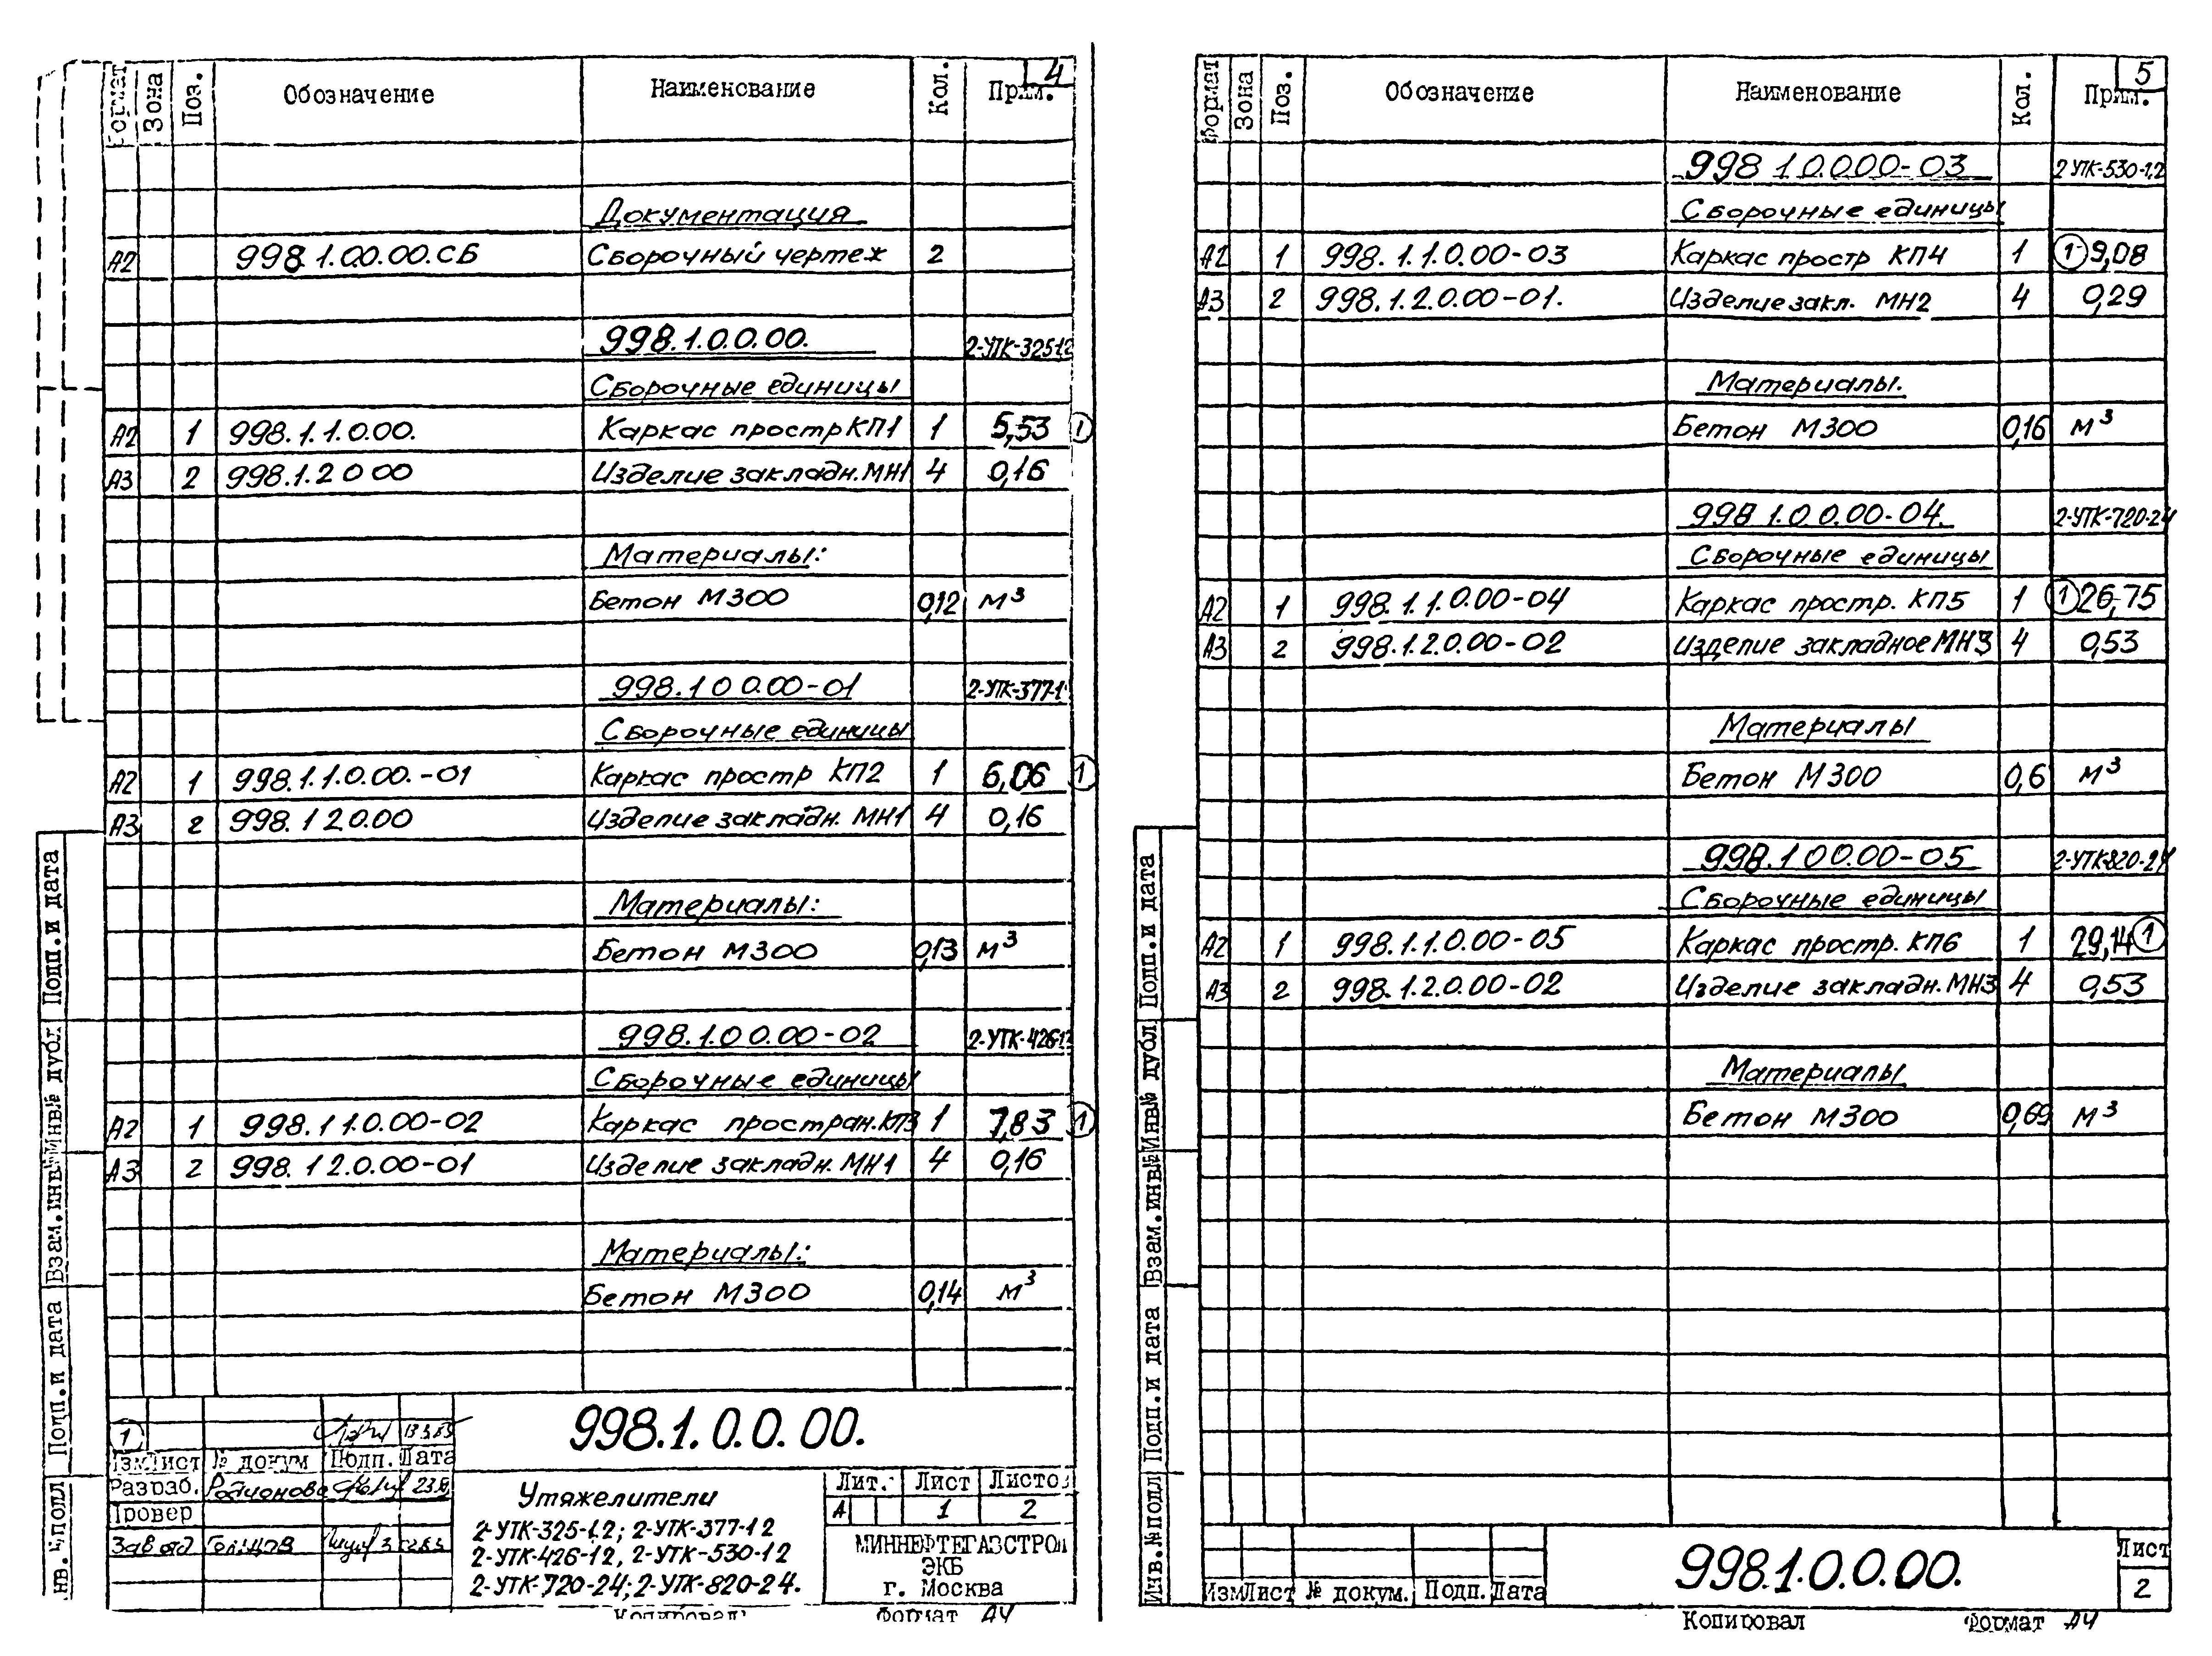 4
Формат Зона Поз. Обозначение Наименование Кол. Прим.
Документация
А2 998.1.00.00.СБ Сборочный чертеж 2
998.1.0.0.00. 2-УТК-325-12
Сборочные единицы
А2 1 998.1.1.0.00. Каркас простр КП1 1 5,53 1
А3 2 998.1.2 0 00 Изделие закладн. МН1 4 0,16
Материалы:
Бетон М300 0,12 м³
998.1 0 0.00-01 2-УТК-377-1
Сборочные единицы
А2 1 998.1.1.0.00.-01 Каркас простр КП2 1 6,06 1
А3 2 998.1 2 0.00 Изделие закладн. МН1 4 0,16
Материалы:
Бетон М300 0,13 м³
998.1.0 0.00-02 2-УТК-426-12
Сборочные единицы
А2 1 998.1 1.0.00-02 Каркас простран. КП3 1 7,83 1
А3 2 998.1 2.0.00-01 Изделие закладн. МН1 4 0,16
Материалы:
Бетон М300 0,14 м³
Подп.и дата
Инв№ дубл.
Взам.инв№
Подп.и дата
Инв.№подл
1
Изм Лист № докум Подп. Дата
Разраб. Родионова
Провер
Зав отд
998.1.0.0.00.
Утяжелители
2-УТК-325-1.2; 2-УТК-377-1 2
2-УТК-426-12, 2-УТК-530-12
2-УТК-720-24; 2-УТК-820-24.
Лит. Лист Листов
А 1 2
МИННЕФТЕГАЗСТРОЙ
ЭКБ
г. Москва
Копировал Формат А4
5
Формат Зона Поз. Обозначение Наименование Кол. Прим.
998 1 0.000-03 2 УТК-530-1,2
Сборочные единицы
А2 1 998.1.1.0.00-03 Каркас простр КП4 1 1 9,08
А3 2 998.1.2.0.00-01. Изделие закл. МН2 4 0,29
Материалы.
Бетон М300 0,16 м³
998 1.0 0.00-04. 2-УТК-720-24
Сборочные единицы
А2 1 998.1.1.0.00-04 Каркас простр. КП5 1 1 26,75
А3 2 998.1.2.0.00-02 Изделие закладное МН3 4 0,53
Материалы
Бетон М300 0,6 м³
998.1 00.00-05 2-УТК-820-24
Сборочные единицы
А2 1 998.1.1.0.00-05 Каркас простр. КП6 1 29,14 1
А3 2 998.1.2.0.00-02 Изделие закладн. МН3 4 0,53
Материалы
Бетон М300 0,69 м³
Подп.и дата
Инв№ дубл.
Взам.инв№
Подп.и дата
Инв.№подл
Изм Лист № докум. Подп. Дата
998.1.0.0.00.
Лист
2
Копировал Формат А4